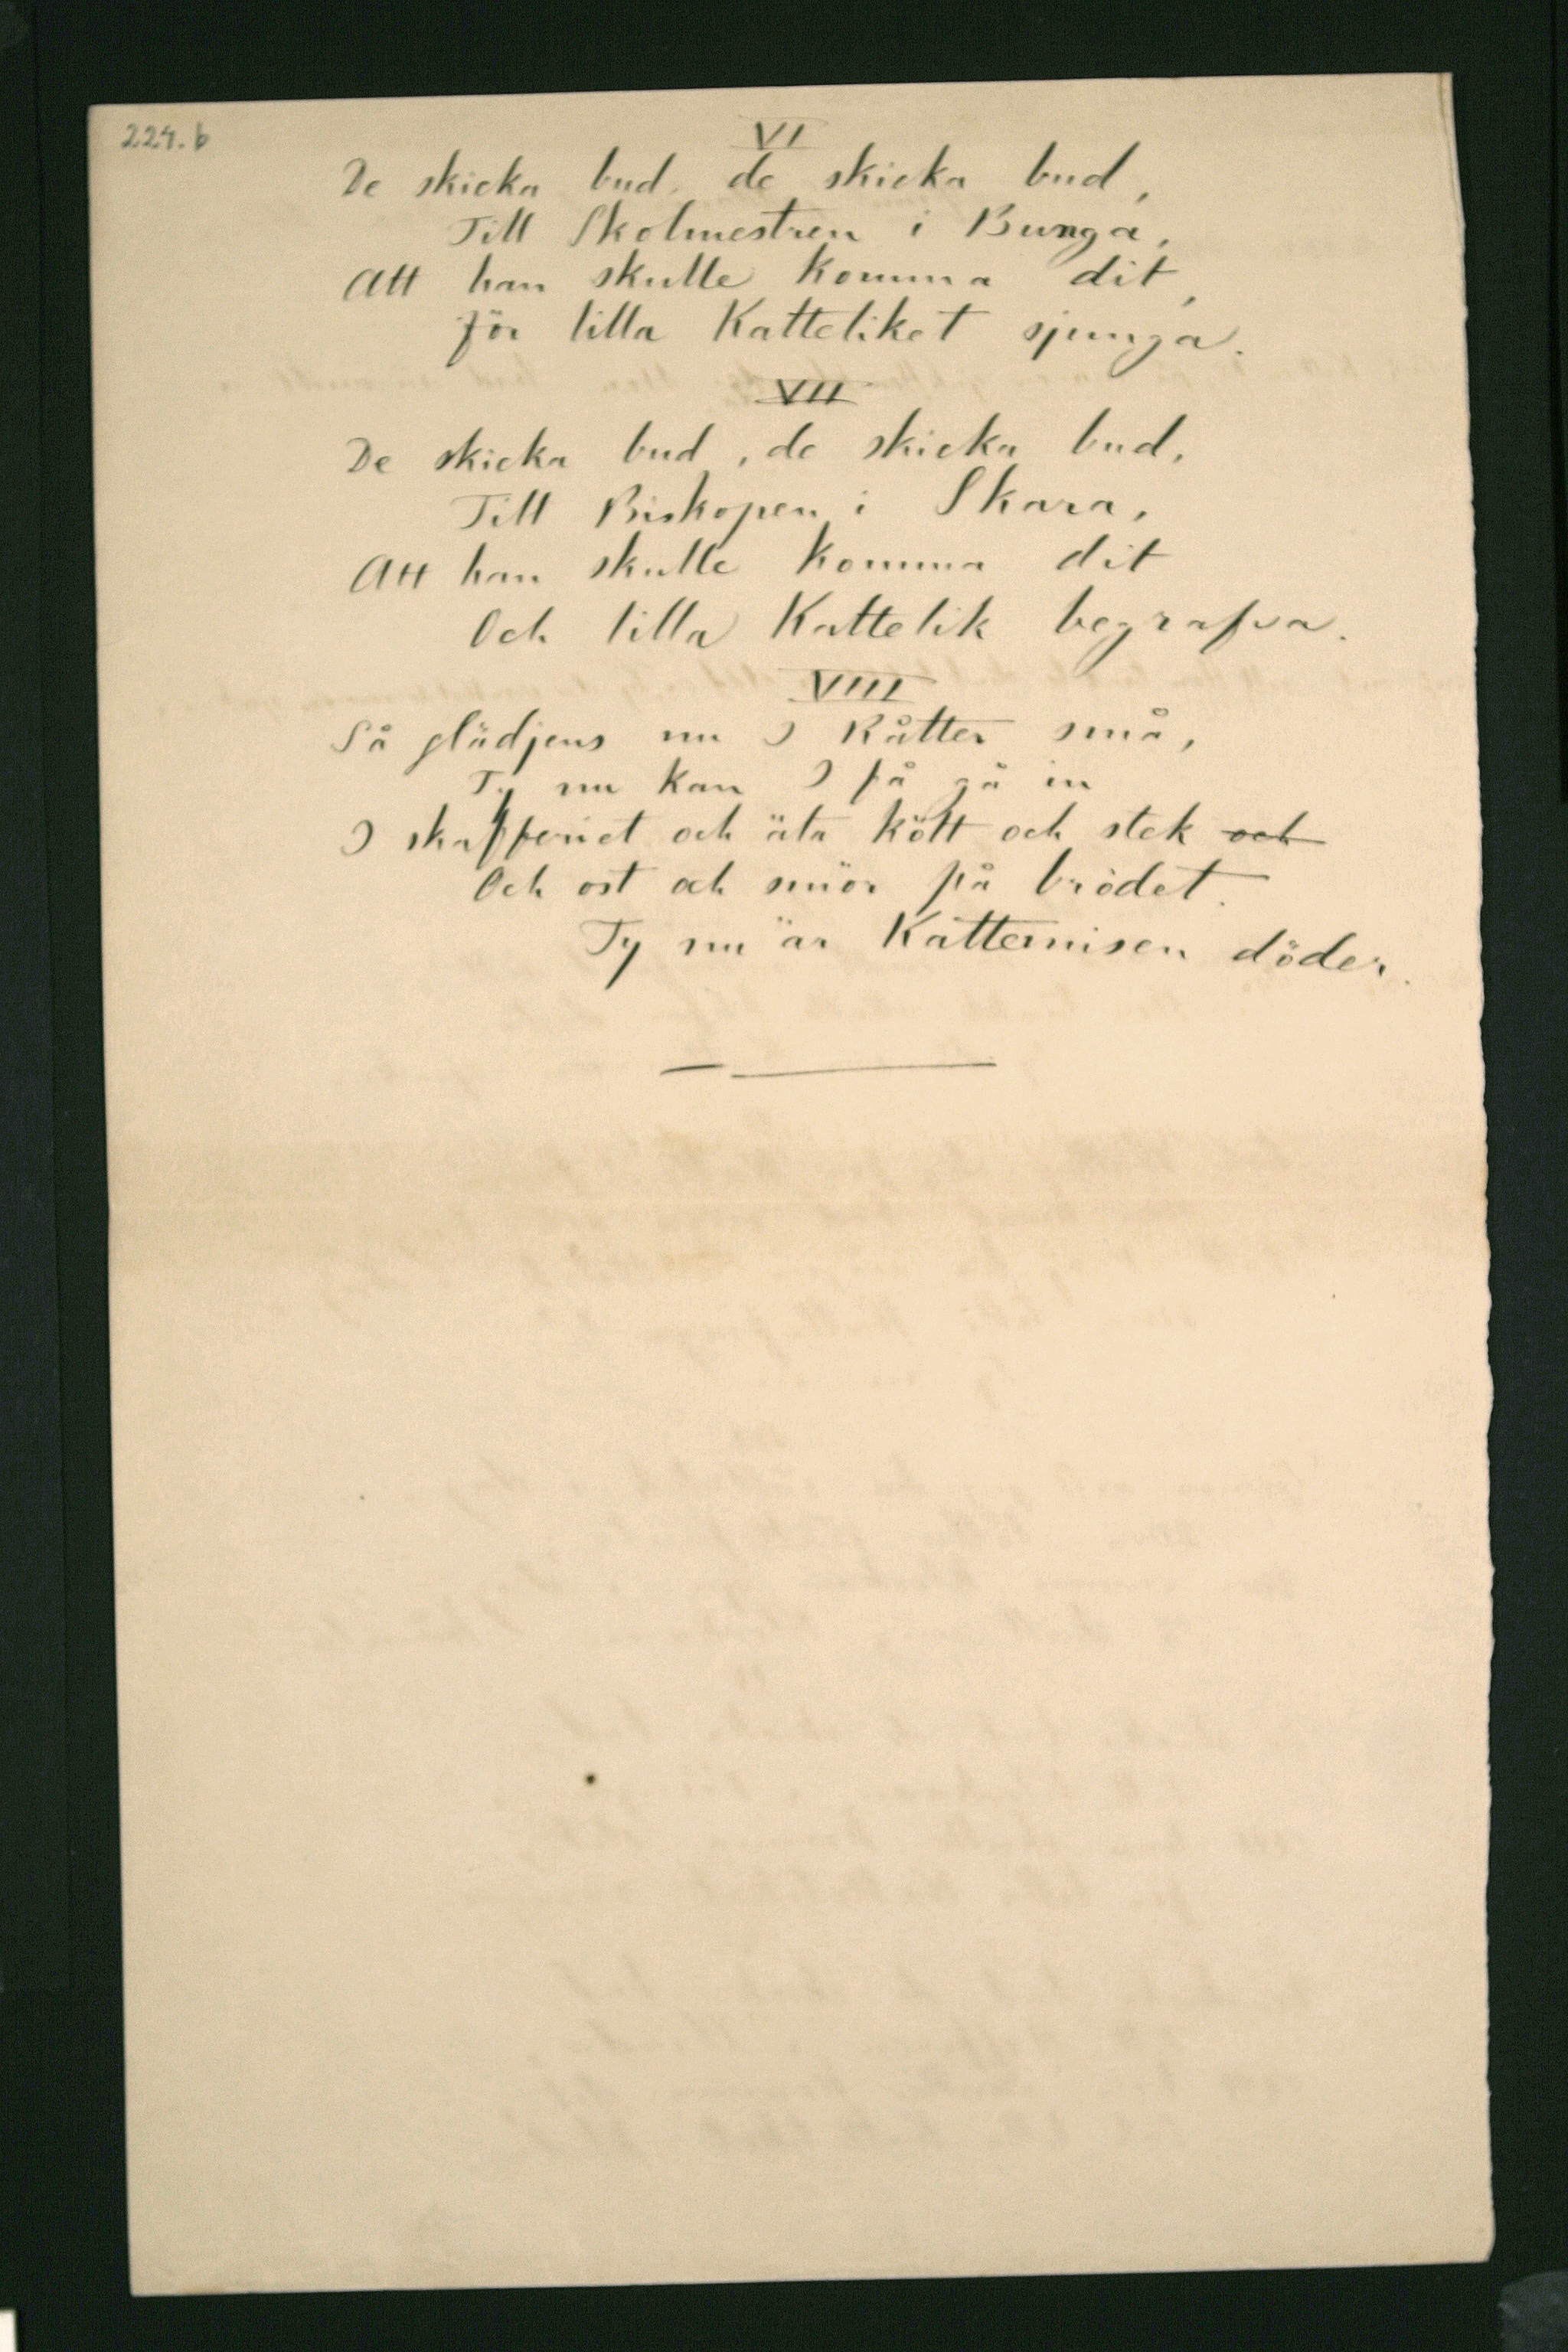 224. b
VI
De skicka bud, de skicka bud,
Till Skolmestren i Bunga,
Att han skulle komma dit,
för lilla Katteliket sjunga.
VII
De skicka bud, de skicka bud,
Till Biskopen i Skara,
Att han skulle komma dit
Och lilla Kattelik begrafva.
VIII
Så glädjens nu I Råtter små,
Ty nu kan I få gå in
I skafferiet och äta kött och stek och
Och ost och smör på brödet.
Ty nu är Kattemisen döder.